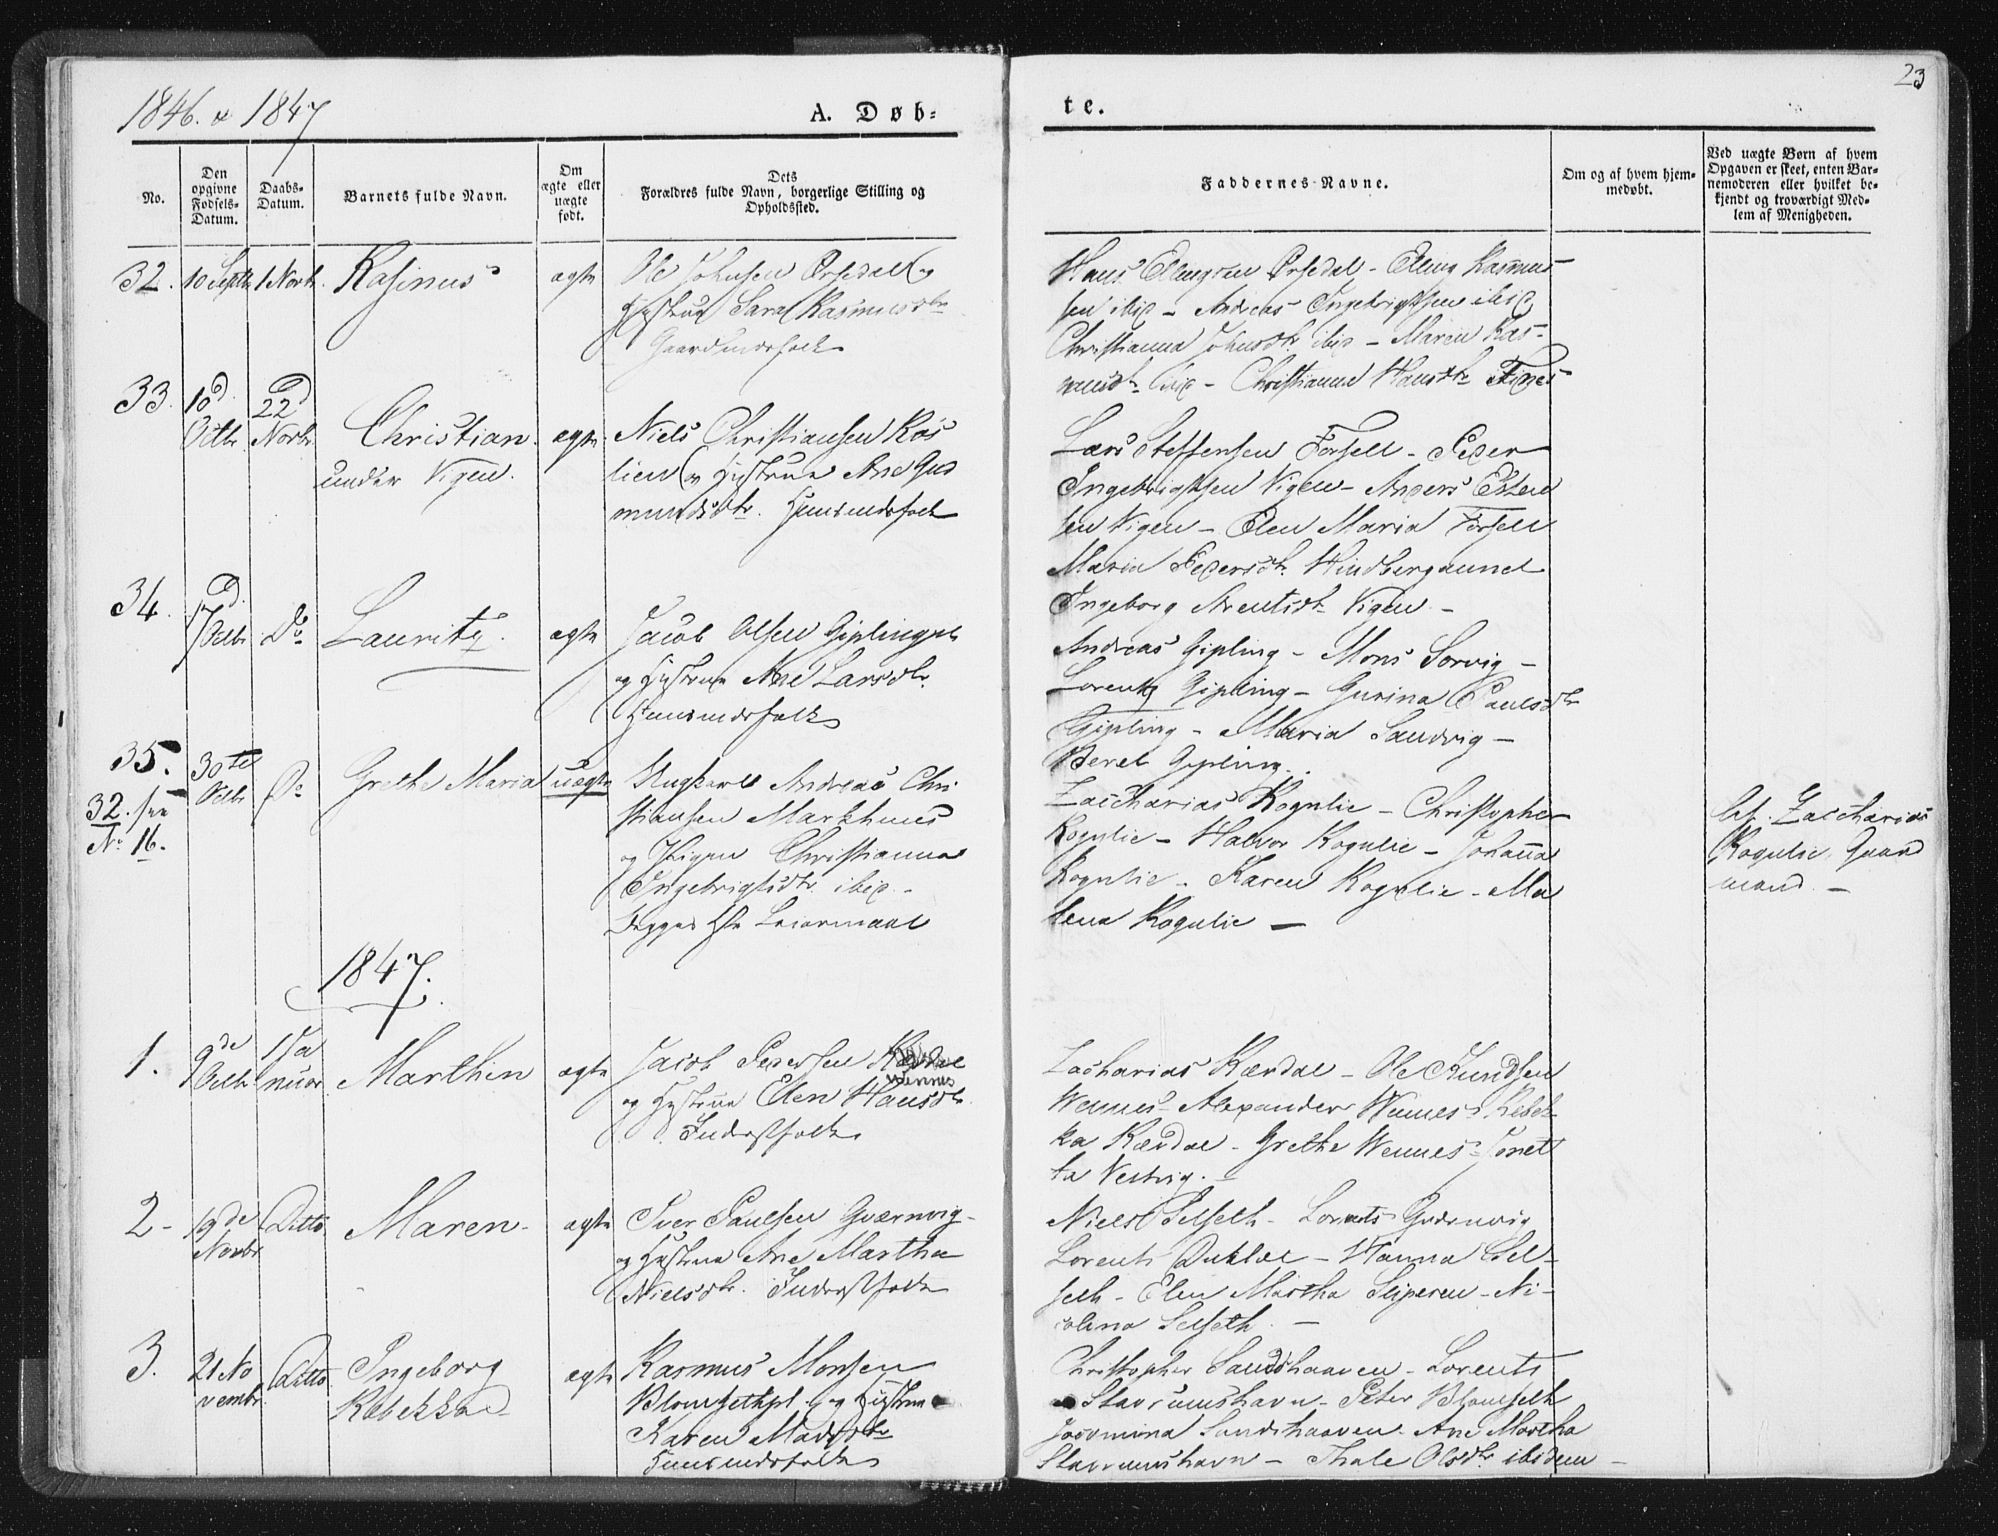 23
1846. & 1847
A. Døb-
te.
No.
Den
opgivne
Fødsels-
Datum.
Daabs-
Datum.
Barnets fulde Navn.
Om
ægte eller
uægte
født.
Dets
Forældres fulde Navn, borgerlige Stilling og
Opholdssted.
Faddernes Navne.
Om og af hvem hjem-
medøbt.
Ved uægte Børn af hvem
Opgaven er skeet, enten Bar-
nemoderen eller hvilket be-
kjendt og troværdigt Med-
lem af Menigheden.
32. 10 Septbr 1 Novbr. Rasinus ægte
Ole Johnsen Ørsedal og
Hustrue Sara Rasmusdtr
Gaardmandsfolk
Hans Elingsen Ørsedal - Eling Rasmus-
sen ibid - Andreas Ingebrigtsen ibid
Christianna Johnsdtr ibid - Maren Ras-
musdtr ibid - Christianna Hansdtr
33. 18d Octbr 22d Novbr. Christian ægte
under Vigen.
Niels Christiansen Ros
lien og Hustrue Ane Gud
mundsdtr. Huusmandsfolk
Lars Steffensen Forsell - Peder
Ingebrigtsen Vigen - Anders Esten
sen Vigen - Elen Maria Forsell
Maria Pedersdtr. Hindbergaunet
Ingeborg Arentsdtr Vigen -
34. 17d Octbr Do Lauritz. ægte
Jacob Olsen Giplingpl.
og Hustrue Ane Larsdtr.
Huusmandsfolk
Andreas Gipling - Mons Sorvig -
Lorentz Gipling - Gurina Paulsdtr
Gipling - Maria Sandvig -
Beret Gipling.
35. 30te Octbr Do Grethe Maria uægte
32. see
No 16.
Ungkarl Andreas Chri
stiansen Markhuus
og Pigen Christianna
Ingebrigtsdtr ibid. -
Begges 1ste Leiermaal
Zaccharias Rognlie - Christopher
Rognlie - Halvor Rognlie - Johanna
Rognlie - Karen Rognlie - Ma
lena Rognlie -
Zaccharias
Rognlie, Gaard
mand. -
1847.
1. 9de Octbr. 1 Ja
nuar Marthin ægte
Jacob Pedersen
Wennes
og Hustrue Elen Hansdtr.
Inderstfolk
Zacharias Kærdal - Ole Knudsen
Wennes - Alexander Wennes - Rebek-
ka Kærdal - Grethe Wennes - Jonet
ta Vestvig. -
2 - 19de Novbr Ditto Maren - ægte
Iver Paulsen Qværnvig -
og Hustrue Ane Martha
Nielsdtr. Inderstfolk
Niels Selseth - Lorents Qværnvig
Lorents - Hanna Sel-
seth - Elen Martha Sliperen - Ni-
colina Selseth. -
3. 21 No
vembr. Ditto Ingeborg
Rebekka ægte
Rasmus Monsen
Blomsethpl. og Hustrue
Karen Madsdtr
Huusmandsfolk
Christopher Sandshaaven - Lorents
Stavrunshavn - Peter Blomseth
Sandshaaven - Ane Martha
Stavrunshavn - Thale Olsdtr ibidem -